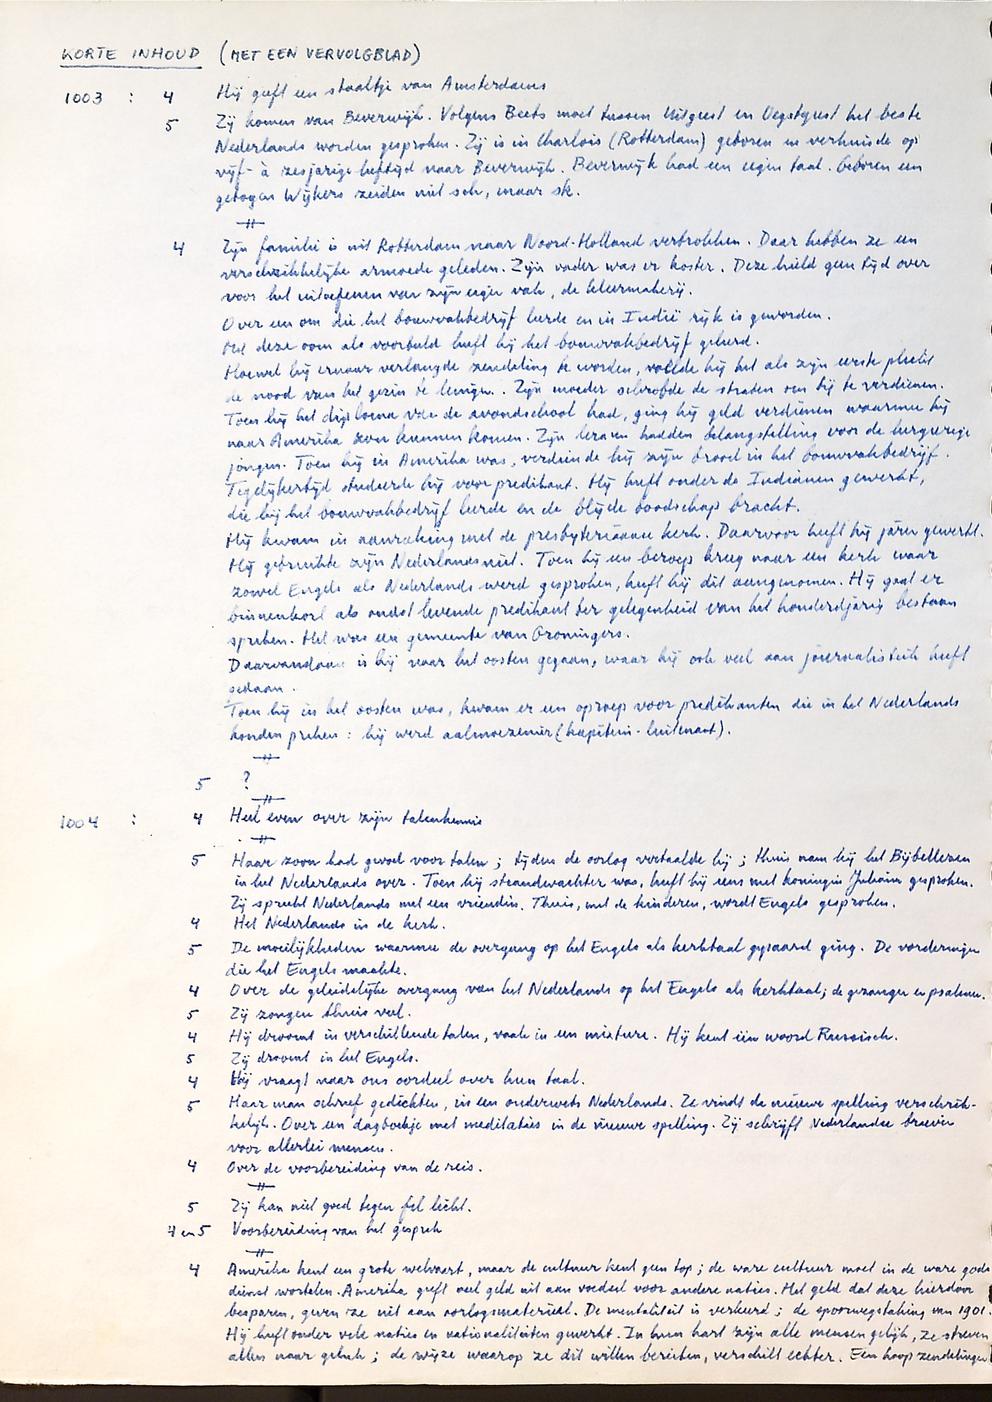 KORTE INHOUD (MET EEN VERVOLGBLAD)
1003 : 4 Hij geeft een staaltje van Amsterdams
5 Zij komen van Beverwijk. Volgens Beets moet tussen Uitgeest en Oegstgeest het beste
Nederlands worden gesproken. Zij is in Charlois (Rotterdam) geboren en verhuisde op
vijf- à zesjarige leeftijd naar Beverwijk. Beverwijk had een eigen taal. Geboren en
getogen Wijkers zeiden niet sch, maar sk.
4 Zijn familie is uit Rotterdam naar Noord-Holland vertrokken. Daar hebben ze een
verschrikkelijke armoede geleden. Zijn vader was er koster. Deze hield geen tijd over
voor het uitoefenen van zijn eigen vak, de kleermakerij.
Over een om die het bouwvakbedrijf leerde en in Indië rijk is geworden.
Met deze oom als voorbeeld heeft hij het bouwvakbedrijf geleerd.
Hoewel hij ernaar verlangde zendeling te worden, voelde hij het als zijn eerste plicht
de nood van het gezin te lenigen. Zijn moeder schrobde de straten om bij te verdienen.
Toen hij het diploma van de avondschool had, ging hij geld verdienen waarmee hij
naar Amerika zou kunnen komen. Zijn leraren hadden belangstelling voor de leergierige
jongen. Toen hij in Amerika was, verdiende hij zijn brood in het bouwvakbedrijf.
Tegelijkertijd studeerde hij voor predikant. Hij heeft onder de Indianen gewerkt,
die hij het bouwvakbedrijf leerde en de blijde boodschap bracht.
Hij kwam in aanraking met de presbyteriaanse kerk. Daarvoor heeft hij jaren gewerkt.
Hij gebruikte zijn Nederlands niet. Toen hij een beroep kreeg naar een kerk waar
zowel Engels als Nederlands werd gesproken, heeft hij dit aangenomen. Hij gaat er
binnenkort als oudst levende predikant ter gelegenheid van het honderdjarig bestaan
spreken. Het was een gemeente van Groningers.
Daarvandaan is hij naar het oosten gegaan, waar hij ook veel aan journalistiek heeft
gedaan.
Toen hij in het oosten was, kwam er een oproep voor predikanten die in het Nederlands
konden preken : hij werd aalmoezenier (kapitein-luitenant).
5 ?
1004 : 4 Heel even over zijn talenkennis
5 Haar zoon had gevoel voor talen ; tijdens de oorlog vertaalde hij ; thuis nam hij het Bijbellezen
in het Nederlands over. Toen hij strandwachter was, heeft hij eens met koningin Juliana gesproken.
Zij spreekt Nederlands met een vriendin. Thuis, met de kinderen, wordt Engels gesproken.
4 Het Nederlands in de kerk.
5 De moeilijkheden waarmee de overgang op het Engels als kerktaal gepaard ging. De vorderingen
die het Engels maakte.
4 Over de geleidelijke overgang van het Nederlands op het Engels als kerktaal ; de gezangen en psalmen.
5 Zij zongen thuis veel.
4 Hij droomt in verschillende talen, vaak in een mixture. Hij kent één woord Russisch.
5 Zij droomt in het Engels.
4 Hij vraagt naar ons oordeel over hun taal.
5 Haar man schreef gedichten, in een ouderwets Nederlands. Ze vindt de nieuwe spelling verschrik-
kelijk. Over een dagboekje met meditaties in de nieuwe spelling. Zij schrijft Nederlandse brieven
voor allerlei mensen.
4 Over de voorbereiding van de reis.
5 Zij kan niet goed tegen fel licht.
4 en 5 Voorbereiding van het gesprek
4 Amerika kent een grote welvaart, maar de cultuur kent geen top ; de ware cultuur moet in de ware gods-
dienst wortelen. Amerika geeft veel geld uit aan voedsel voor andere naties. Het geld dat deze hierdoor
besparen, geven ze uit aan oorlogsmateriaal. De mentaliteit is verkeerd ; de spoorwegstaking van 1901.
Hij heeft onder vele naties en nationaliteiten gewerkt. In hun hart zijn alle mensen gelijk, ze streven
allen naar geluk ; de wijze waarop ze dit willen bereiken, verschilt echter. Een hoop zendelingen